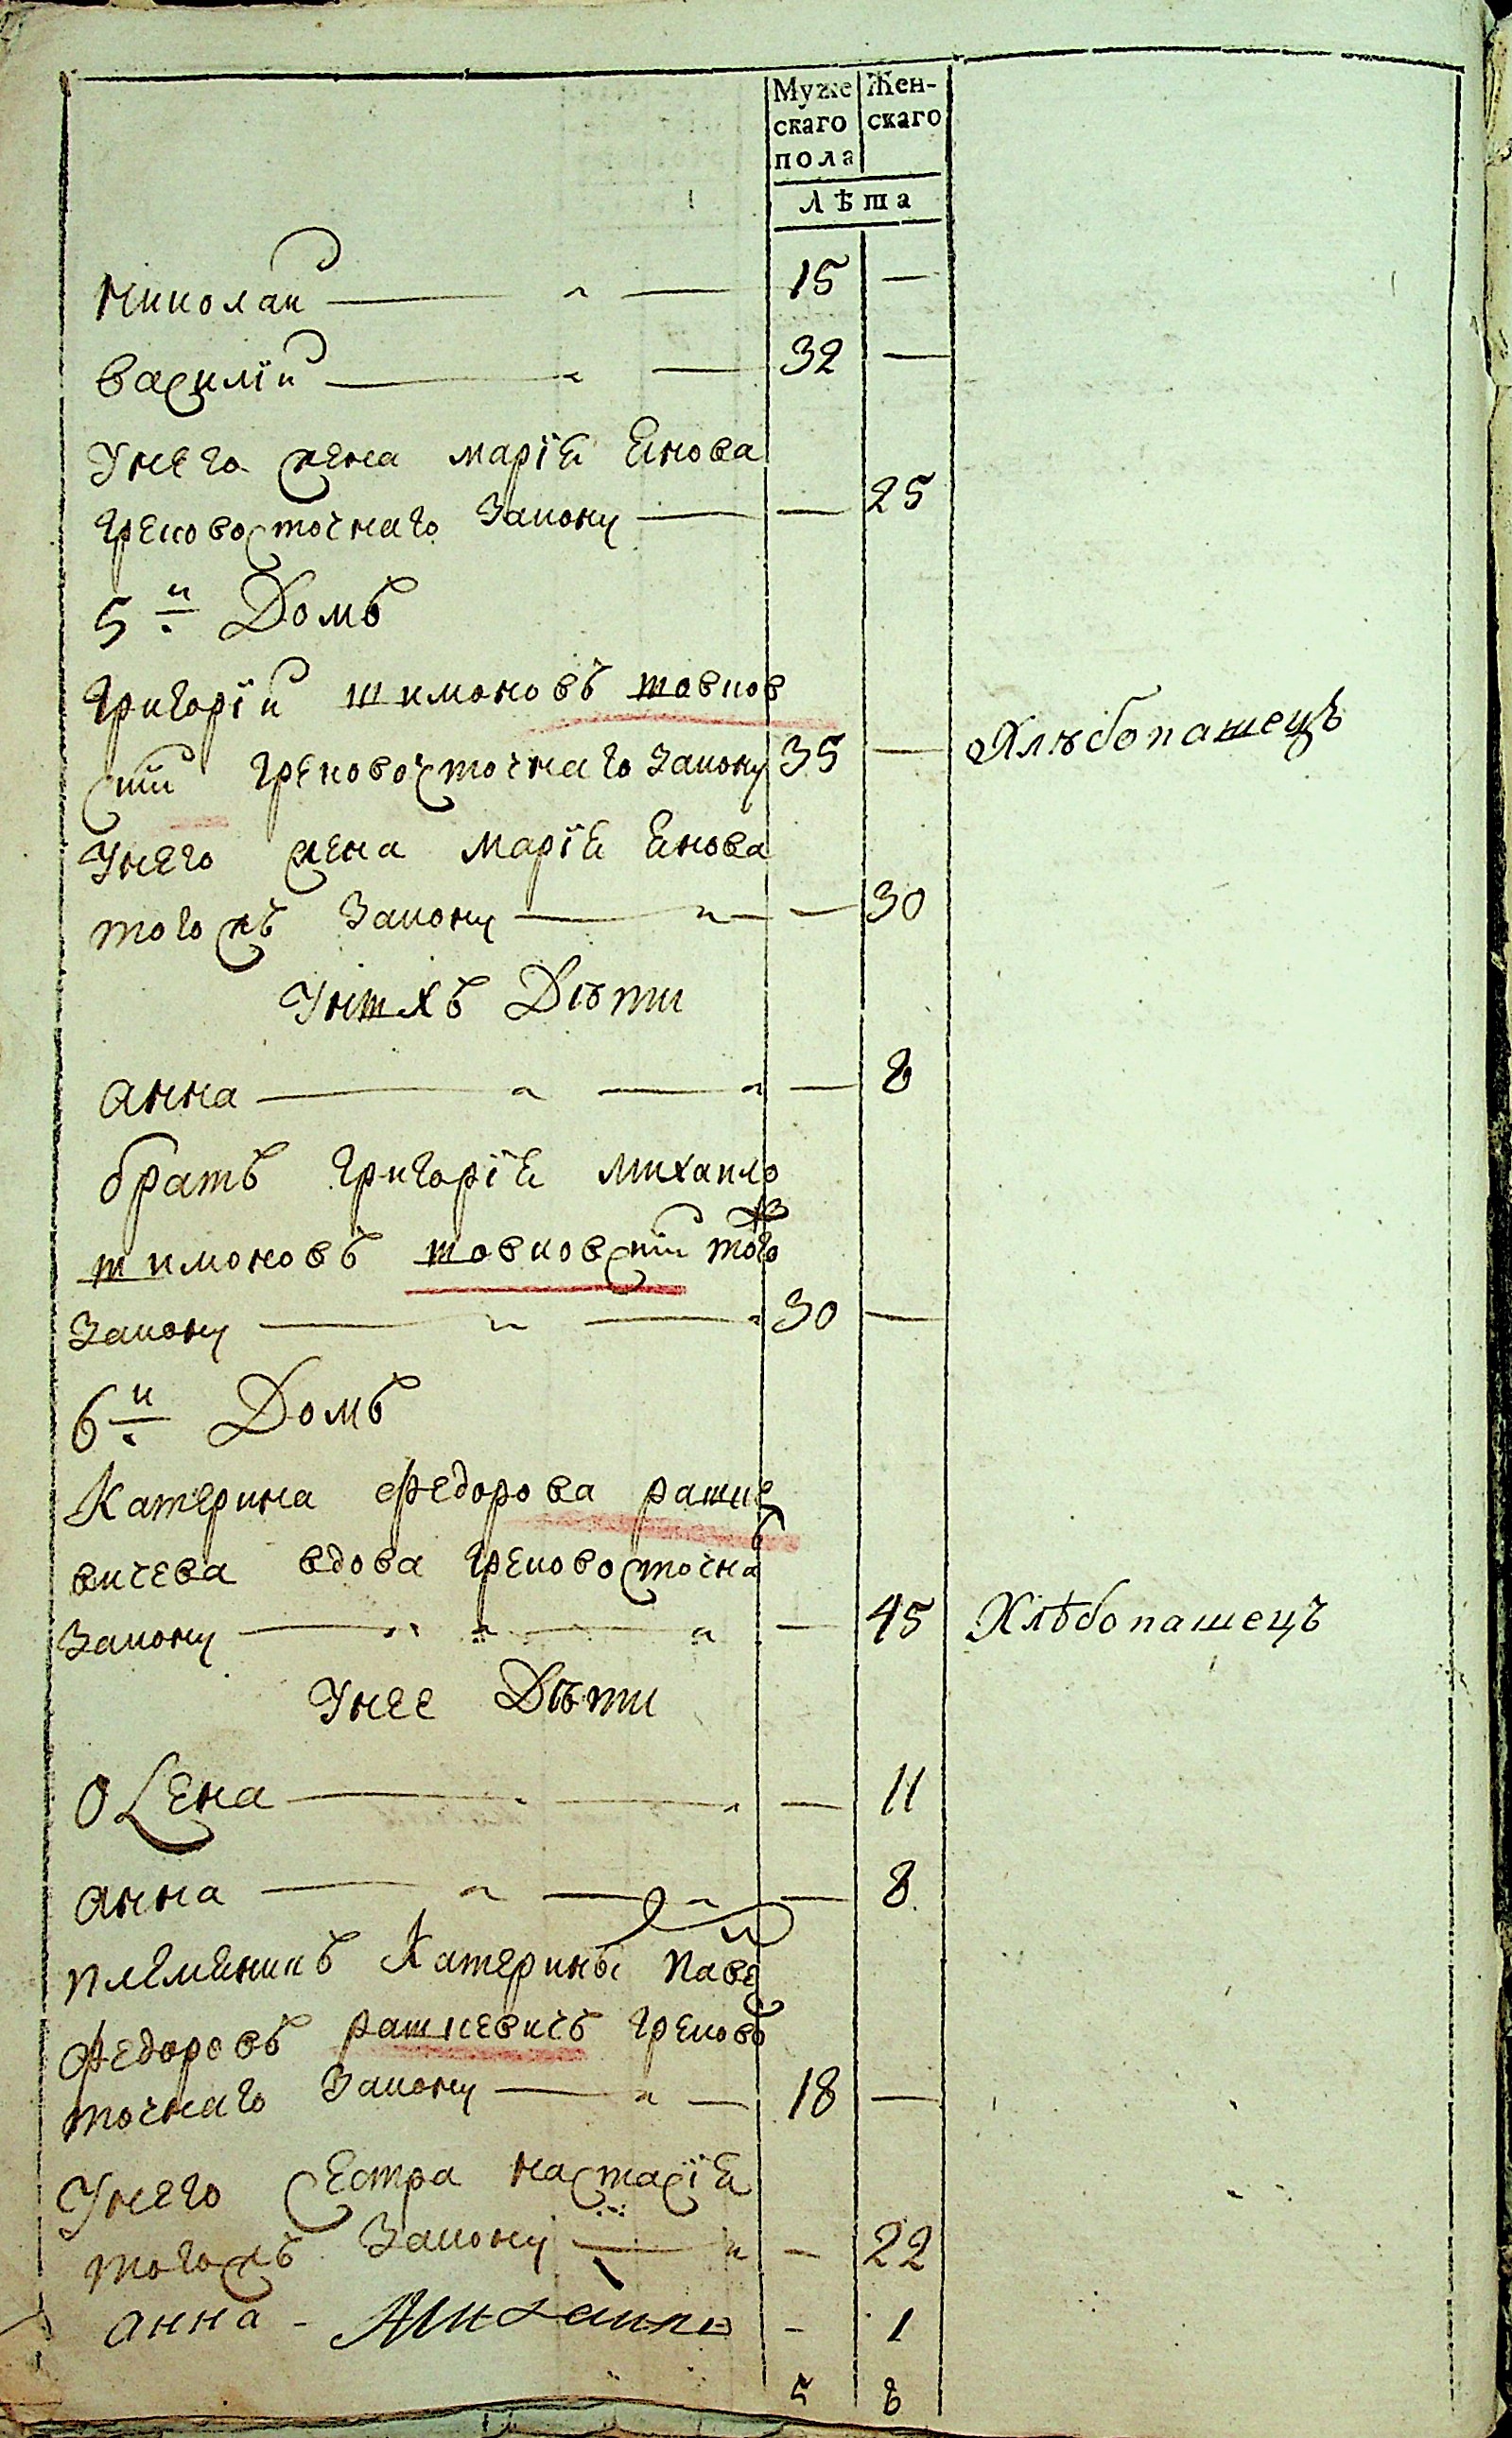 Муже Жен-
скаго скаго
пола
Лѣта
Николай — 15 —
василїй — 32 —
Унего жена марїя Янова
грековосточнаго Закону — — 25
5й Домъ
григорїй тимоновъ товков
скїй грековосточнаго Закону 35 — Хлѣбопашецъ
Унего жена марїя Янова
тогожъ Закону — — 30
Унихъ Дѣти
анна — — 8
братъ григорїя михайло
тимоновъ товковскїй тогожъ
Закону — 30 —
6й Домъ
Катерина федорова рашке
вичева вдова грековосточнаго
Закону — — 45 Хлѣбопашецъ
Унее Дѣти
оLена — — 11
анна — — 8
племяникъ Катерины павел
федоровъ рашкевичъ грековос
точнаго Закону — 18 —
Унего сестра настасїя
тогожъ Закону — — 22
анна - Михайло - 1
5 8